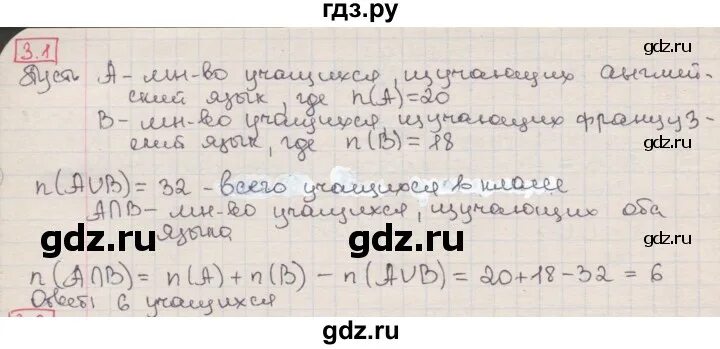 гдз.ру
3.1
gdz.ru
Пусть А - мн-во учащихся, изучающих англий-
ский язык, где n(A)=20
В - мн-во учащихся изучающих француз-
ский язык, где n(B)=18
gdz.ru
gdz.ru
n(A∪B)= 32 - всего учащихся в классе
A∩B - мн-во учащихся, изучающих оба
языка
gdz.ru
gdz.ru
n(A∩B)= n(A)+n(B) - n(A∪B)= 20+18-32 = 6
Ответ: 6 учащихся
gdz.ru